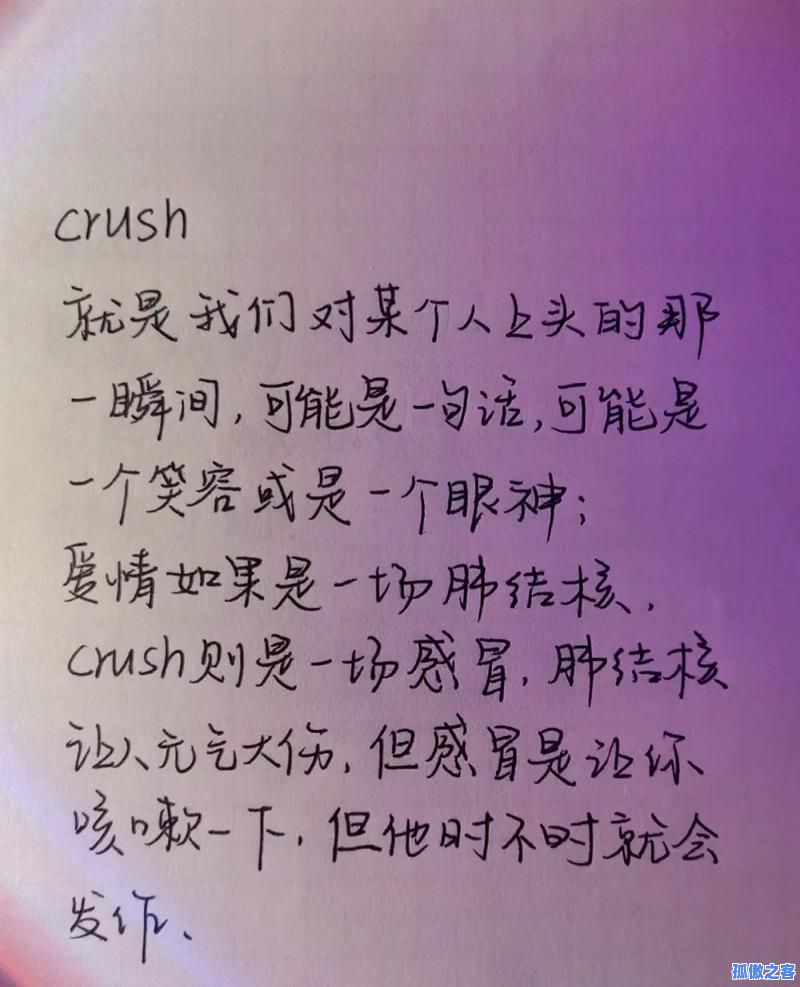 crush
就是我们对某个人上头的那
一瞬间,可能是一句话,可能是
一个笑容或是一个眼神;
爱情如果是一场肺结核.
crush则是一场感冒,肺结核
让人元气大伤,但感冒是让你
咳嗽一下,但他时不时就会
发作、
孤傲之客